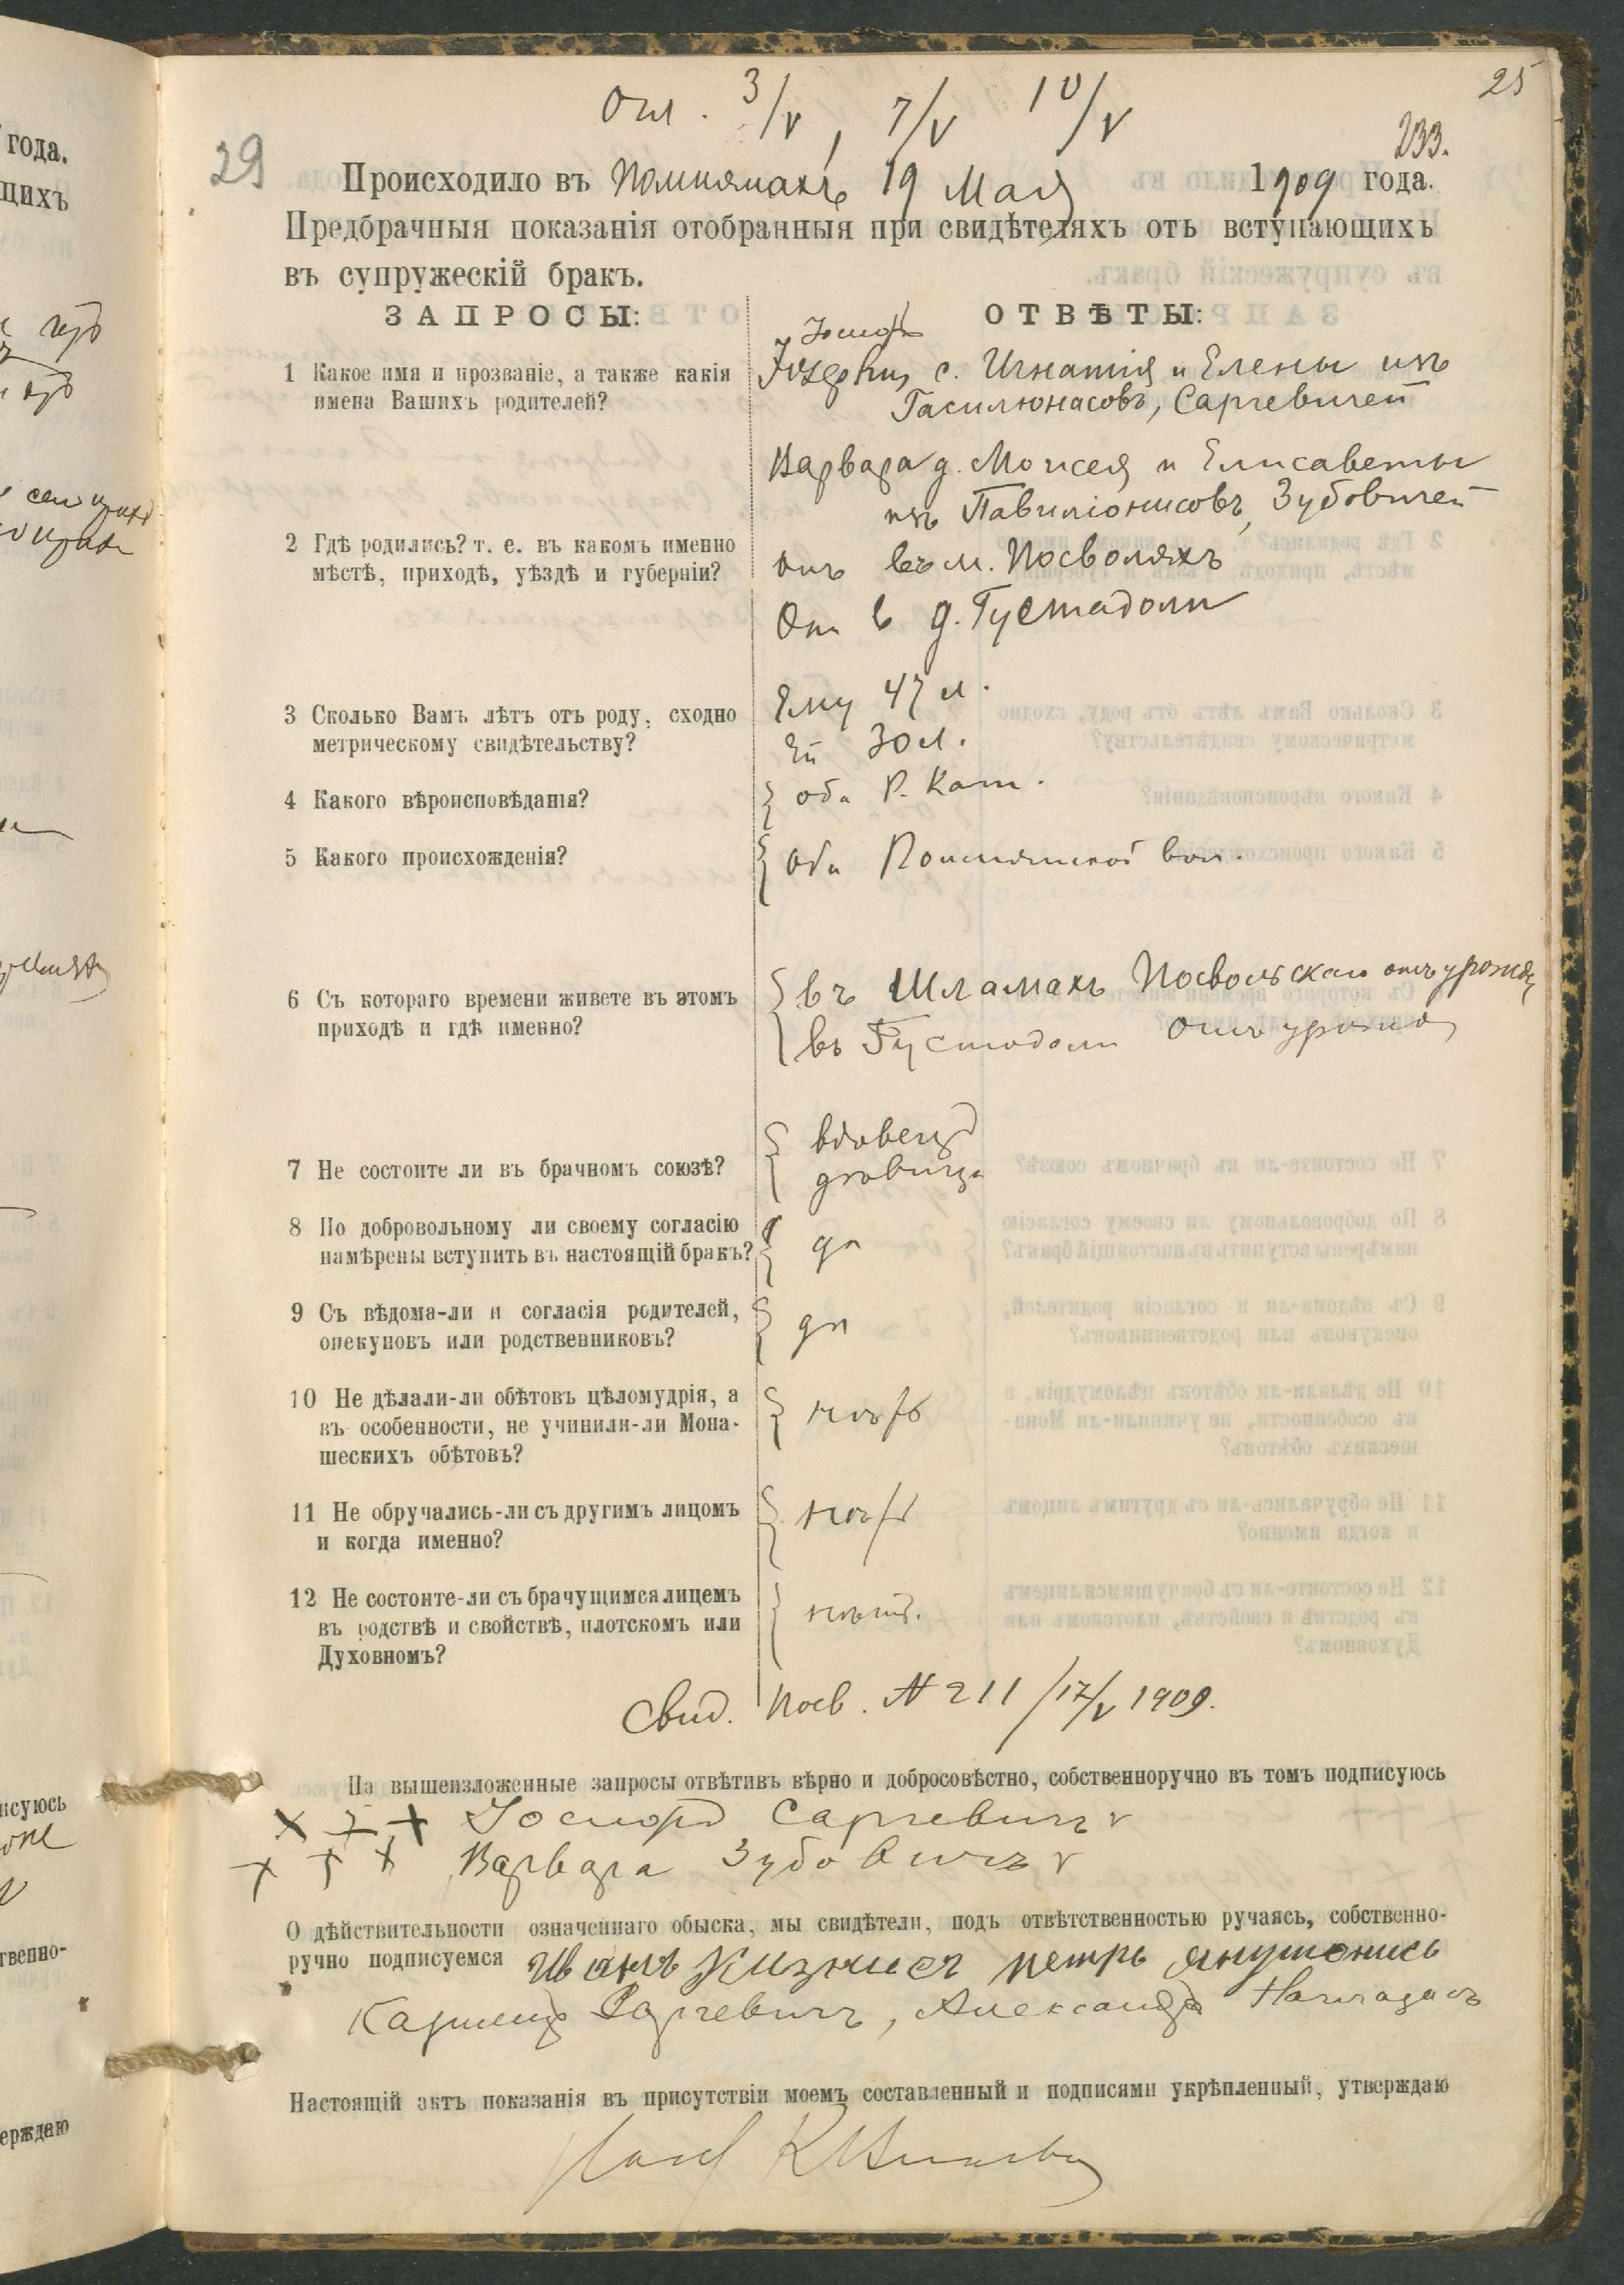 25
Огл. 3/V, 7/V 10/V
233.
29
Происходило въ Помпянахъ 19 Мая 1909 года.
Предбрачныя показанія отобранныя при свидѣтеляхъ отъ вступающихъ
въ супружескій бракъ.
ЗАПРОСЫ: ОТВѢТЫ:
1 Какое имя и прозваніе, а также какія
имена Вашихъ родителей?
Іосифъ
Josephus с. Игнатія и Елены изъ
Гасилюнасовъ, Саргевичей
Варвара д. Моисея и Елисаветы
изъ Павиліонисовъ, Зубовичей
2 Гдѣ родились? т. е. въ какомъ именно
мѣстѣ, приходѣ, уѣздѣ и губерніи?
онъ въ м. Посволяхъ
Она въ д. Густадоли
3 Сколько Вамъ лѣтъ отъ роду, сходно
метрическому свидѣтельству?
Ему 47 л.
Ей 30 л.
4 Какого вѣроисповѣданія?
оба Р. Кат.
5 Какого происхожденія?
Оба вол.
6 Съ котораго времени живете въ этомъ
приходѣ и гдѣ именно?
въ Шламахъ Посвольскаго отъ урожд
въ Густодоли отъ урожд
7 Не состоите ли въ брачномъ союзѣ?
вдовецъ
дѣвица
8 По добровольному ли своему согласію
намѣрены вступить въ настоящій бракъ?
да
9 Съ вѣдома-ли и согласія родителей,
опекуновъ или родственниковъ?
да
10 Не дѣлали-ли обѣтовъ цѣломудрія, а
въ особенности, не учинили-ли Мона-
шескихъ обѣтовъ?
нѣтъ
11 Не обручались-ли съ другимъ лицомъ
и когда именно?
нѣтъ
12 Не состоите-ли съ брачущимся лицемъ
въ родствѣ и свойствѣ, плотскомъ или
Духовномъ?
нѣтъ.
Свид. Посв. № 211 /17/V 1909.
На вышеизложенные запросы отвѣтивъ вѣрно и добросовѣстно, собственноручно въ томъ подписуюсь
+ + + Іосифъ Саргевичъ
+ + + Варвара Зубовичъ
О дѣйствительности означеннаго обыска, мы свидѣтели, подъ отвѣтственностью ручаясь, собственно-
ручно подписуемся Иванъ петръ янушонисъ
Саргевичъ, Александръ
Настоящій актъ показанія въ присутствіи моемъ составленный и подписями укрѣпленный, утверждаю